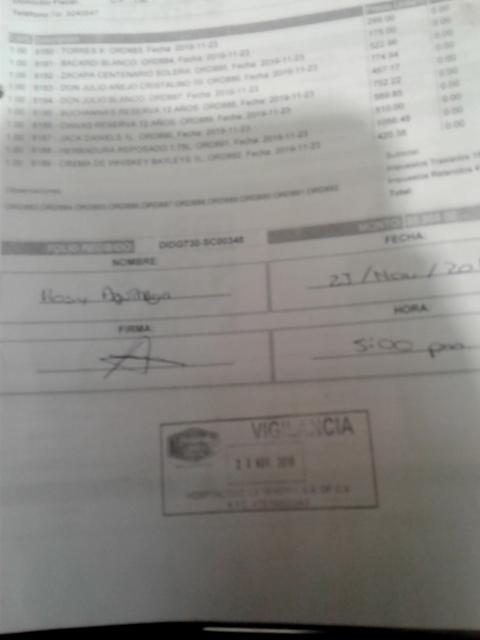 Teléfono:Tel: 9240547
Cant. Descripción
1.00 8180 - TORRES X. ORD883, Fecha: 2019-11-23 288.00 0.00
1.00 8181 - BACARDI BLANCO. ORD884, Fecha: 2019-11-23 175.00 0.00
1.00 8182 - ZACAPA CENTENARIO SOLERA. ORD885, Fecha: 2019-11-23 522.98 0.00
1.00 8183 - DON JULIO AÑEJO CRISTALINO 70. ORD886, Fecha: 2019-11-23 774.94 0.00
1.00 8184 - DON JULIO BLANCO. ORD887, Fecha: 2019-11-23 467.17 0.00
1.00 8185 - BUCHANNAS RESERVA 12 AÑOS. ORD888, Fecha: 2019-11-23 752.22 0.00
1.00 8186 - CHIVAS RESERVA 12 AÑOS. ORD889, Fecha: 2019-11-23 589.85 0.00
1.00 8187 - JACK DANIELS 1L. ORD890, Fecha: 2019-11-23 510.00 0.00
1.00 8188 - HERRADURA REPOSADO 1.75L. ORD891, Fecha: 2019-11-23 1068.48 0.00
1.00 8189 - CREMA DE WHISKEY BAYLEYS 1L. ORD892, Fecha: 2019-11-23 420.38 0.00
Subtotal:
Impuestos Traslados
Impuestos Retenidos
Total:
Observaciones
ORD883,ORD884,ORD885,ORD886,ORD887,ORD888,ORD889,ORD890,ORD891,ORD892
FOLIO RECIBIDO: DIDG730-SC00348
NOMBRE: FECHA:
Rosy 23/Nov/20
FIRMA: HORA:
5:00 pm
VIGILANCIA
NOV. 2019
S.A. DE C.V.